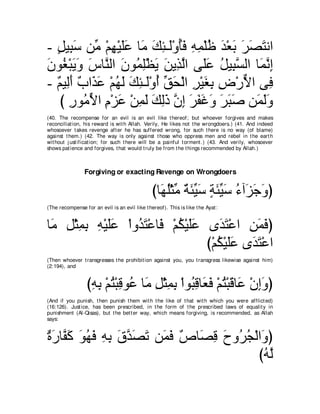 - ٍلِيبَس نِّم مِهْيَلَع اَم َكِئـَلْوُأَف ِهِمْلُظ َدْعَب َرَصَتنا
َنوُغْبَيَو َساَّنلا َنوُمِلْظَي َنيِذَّلا ىَلَع ُليِبَّسلا اَمَّنِإ
- ٌميِلَأ ٌباَذَع ْمُهَل َكِئـَلْوُأ ِّقَحْلا ِرْيَغِب ِضْرَّالا ىِف
( ِروُمٌّالا ِمْزَع ْنِمَل َكِلَذ َّنِإ َرَفَغَو َرَبَص نَمَلَو
(40. The recompense for an evil is an evil like thereof; but whoever forgives and makes
reconciliation, his reward is with Allah. Verily, He likes not the wrongdoers.) (41. And indeed
whosoever takes revenge after he has suffered wrong, for such there is no way (of blame)
against them.) (42. The way is only against those who oppress men and rebel in the earth
without justification; for such there will be a painful torment.) (43. And verily, whosoever
shows patience and forgives, that would truly be from the things recommended by Allah.)
Forgiving or exacting Revenge on Wrongdoers
(اَهُلْثِّم ٌةَئِّيَس ٍةَئِّيَس ُءآَزَجَو)
(The recompense for an evil is an evil like thereof). This is like the Ayat:
اَم ِلْثِمِب ِهْيَلَع ْاوُدَتْعاَف ْمُكْيَلَع ىَدَتْعا ِنَمَف)
(ْمُكْيَلَع ىَدَتْعا
(Then whoever transgresses the prohibition against you, you transgress likewise against him)
(2:194), and
(ِهِب ْمُتْبِقوُع اَم ِلْثِمِب ْاوُبِقاَعَف ْمُتْبَقاَع ْنِإَو)
(And if you punish, then punish them with the like of that with which you were afflicted)
(16:126). Justice, has been prescribed, in the form of the prescribed laws of equality in
punishment (Al-Qisas), but the better way, which means forgiving, is recommended, as Allah
says:
ٌةَراَّفَك َوُهَف ِهِب َقَّدَصَت نَمَف ٌصاَصِق َحوُرُجْلاَو)
(ُهَّل